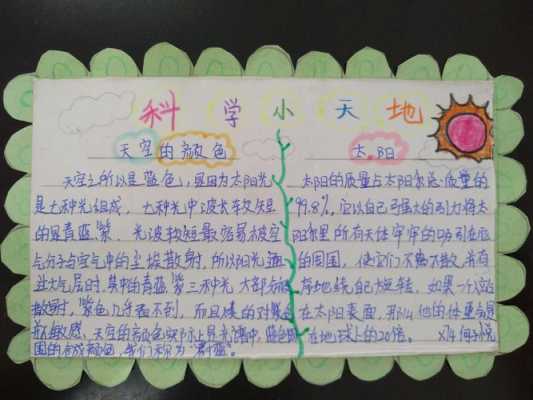 科学小天地
天空的颜色
天空之所以是蓝色,是因为太阳光
是七种光组成,七种光中波长较短
的是青蓝紫,光波较短最容易被空
气分子与空气中的尘埃散射,所以阳光通
过大气层时,其中的青蓝紫三种光大部分被
散射,紫色几乎看不到,而且
敏感,天空的颜色实际上是光谱中蓝色
围的合成颜色,我们称为"蔚蓝"。
太阳
太阳的质量占太阳系总质量的
99.8%,它以自己强大的引力将太
阳系里所有天体牢牢的吸引在
的周围,使它们不离不散,井
有序地绕自己旋转,如果一个
在太阳表面,那么他的体重会是
在地球上的20倍。